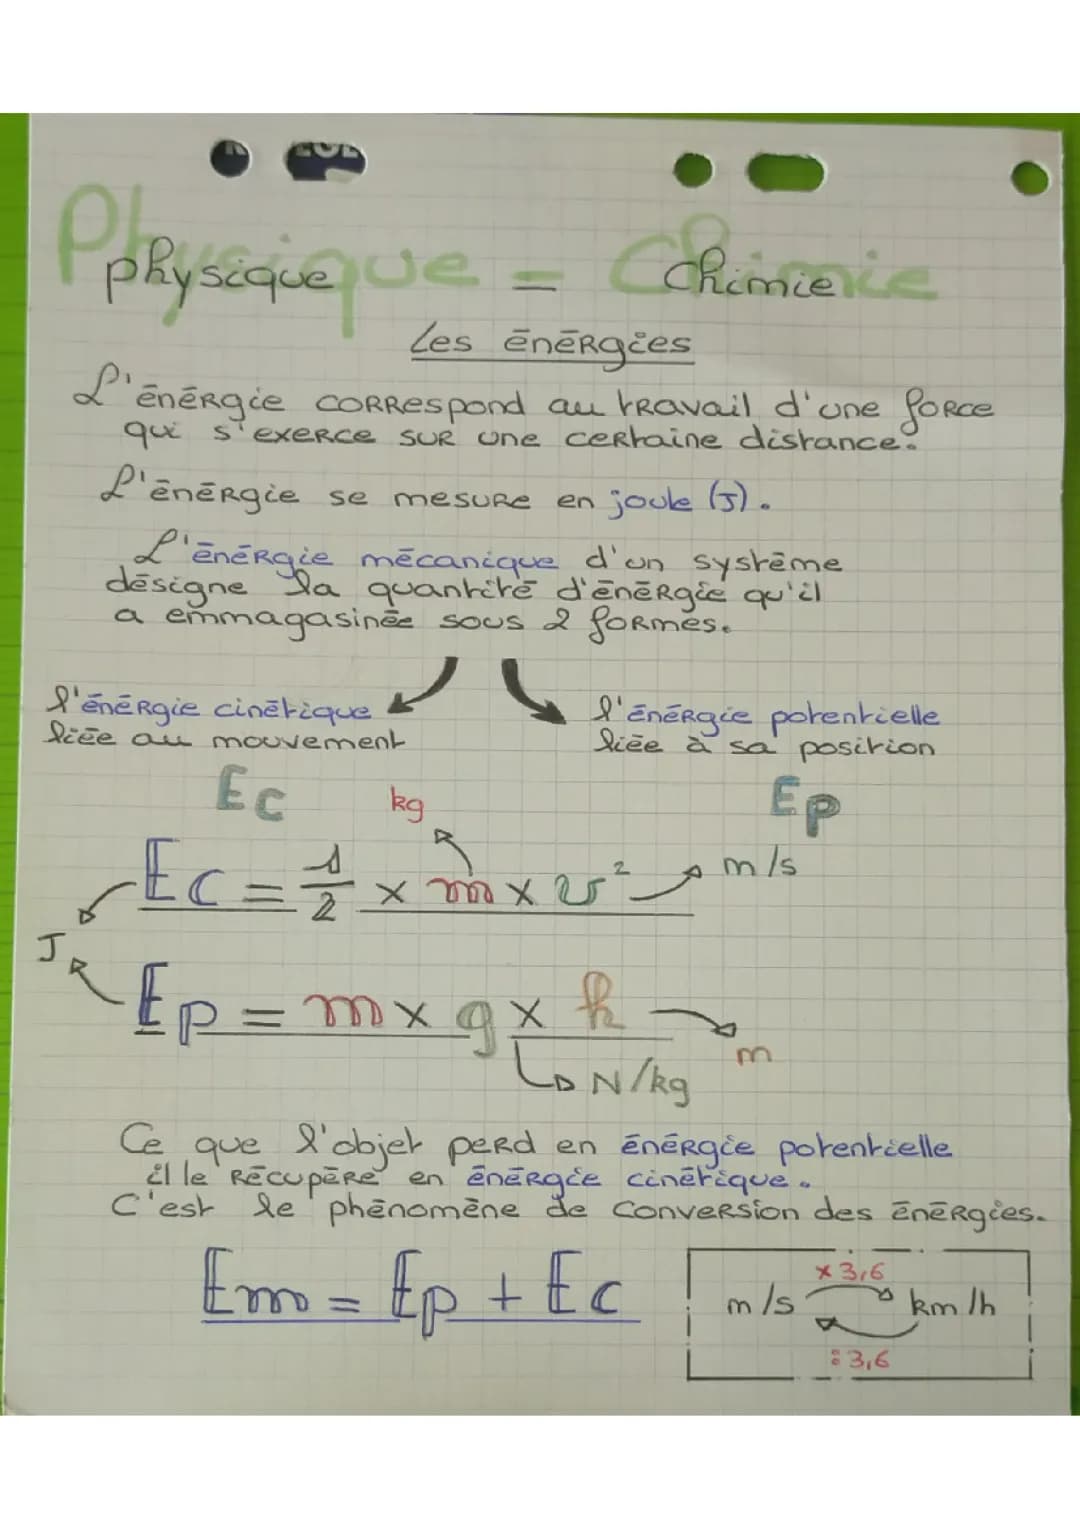 Physique = Chimie
physique
Chimie
Les énergies
L'énergie correspond au travail d'une force
qui s'exerce sur une certaine distance.
L'énergie se mesure en joule (J).
L'énergie mécanique d'un système
désigne la quantité d'énergie qu'il
a emmagasinée sous 2 formes.
l'énergie cinétique
liée au mouvement
l'énergie potentielle
liée à sa position
Ec
kg
Ep
Ec = 1/2 × m × v² m/s
J
Ep = m × g × h
m
N/kg
Ce que l'objet perd en énergie potentielle
il le récupère en énergie cinétique.
C'est le phénomène de conversion des énergies.
Em = Ep + Ec
× 3,6
m/s km/h
: 3,6